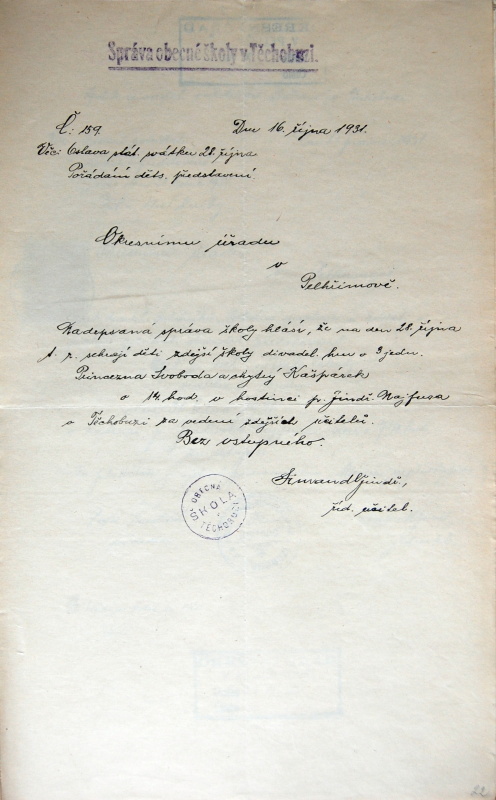 Správa obecné školy v Těchobuzi.
Č: 159
Dne 16. října 1931.
Věc: Oslava stát. svátku 28. října
Pořádání děts. představení.
Okresnímu úřadu
v
Pelhřimově.
Nadepsaná správa školy hlásí, že na den 28. října
t. r. sehrají děti zdejší školy divadel. hru o 3 jedn.
Princezna Svoboda a chytrý Kašpárek
o 14 hod. v hostinci p. Jindř. Najfusa
v Těchobuzi za vedení zdejších učitelů.
Bez vstupného.
Jindř.,
říd. učitel.
OBECNÁ
ŠKOLA
V
TĚCHOBUZI
22